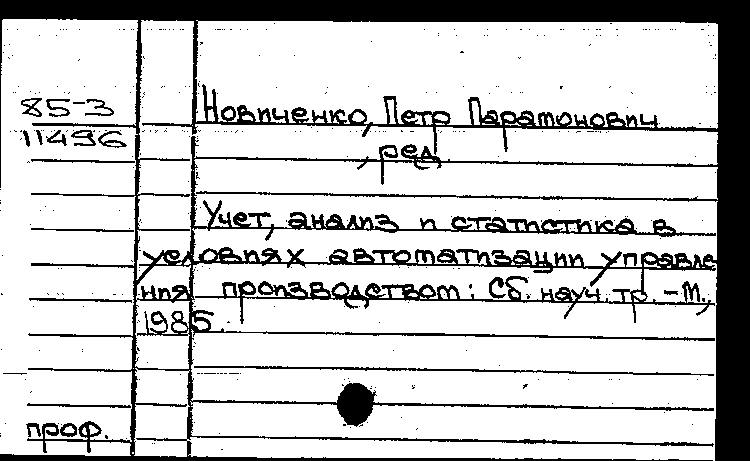 85-3
11496
Новиченко, Петр Парамонович
, ред.
Учет, анализ и статистика в
условиях автоматизации управле
ния производством: Сб. науч. тр. - М.,
1985.
проф.